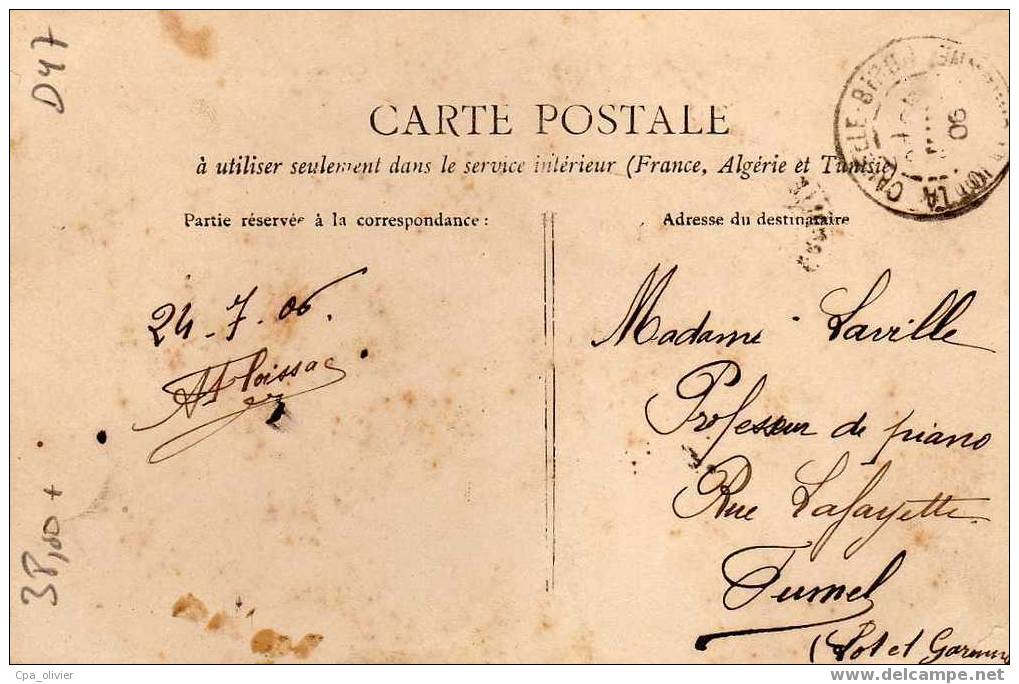 D47
CARTE POSTALE
à utiliser seulement dans le service intérieur (France, Algérie et Tunisie)
Partie réservée à la correspondance :
Adresse du destinataire
24-7-06.
Madame Laville
Professeur de piano
Rue Lafayette
Fumel
(Lot et Garonne
LA CAPELLE-BIRON
06
Cpa_olivier
delcampe.net